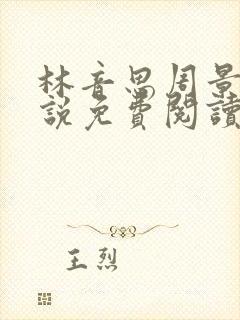 林音思周景
説免費閱讀
王烈